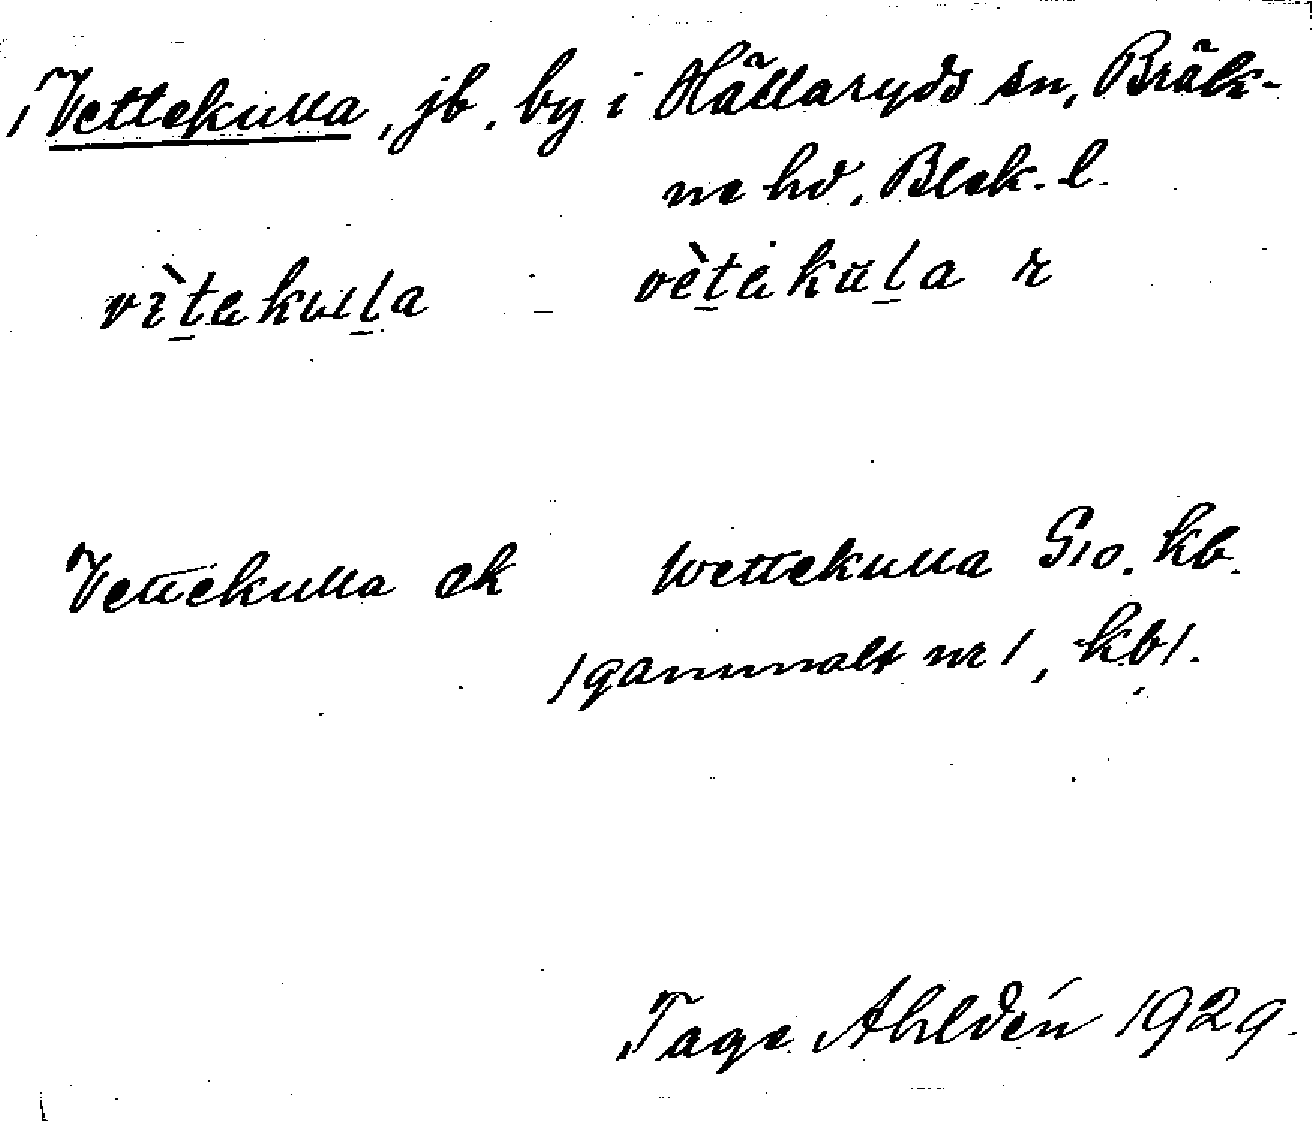 Vettekulla, jb. by i Hällaryds sn, Bräk-
ne hd, Blek. l.
vètekulla - vètekula r
Vettekulla ek Wettekulla G10. kb.
/gammalt nr 1, kb/.
Tage Ahldén 1929.